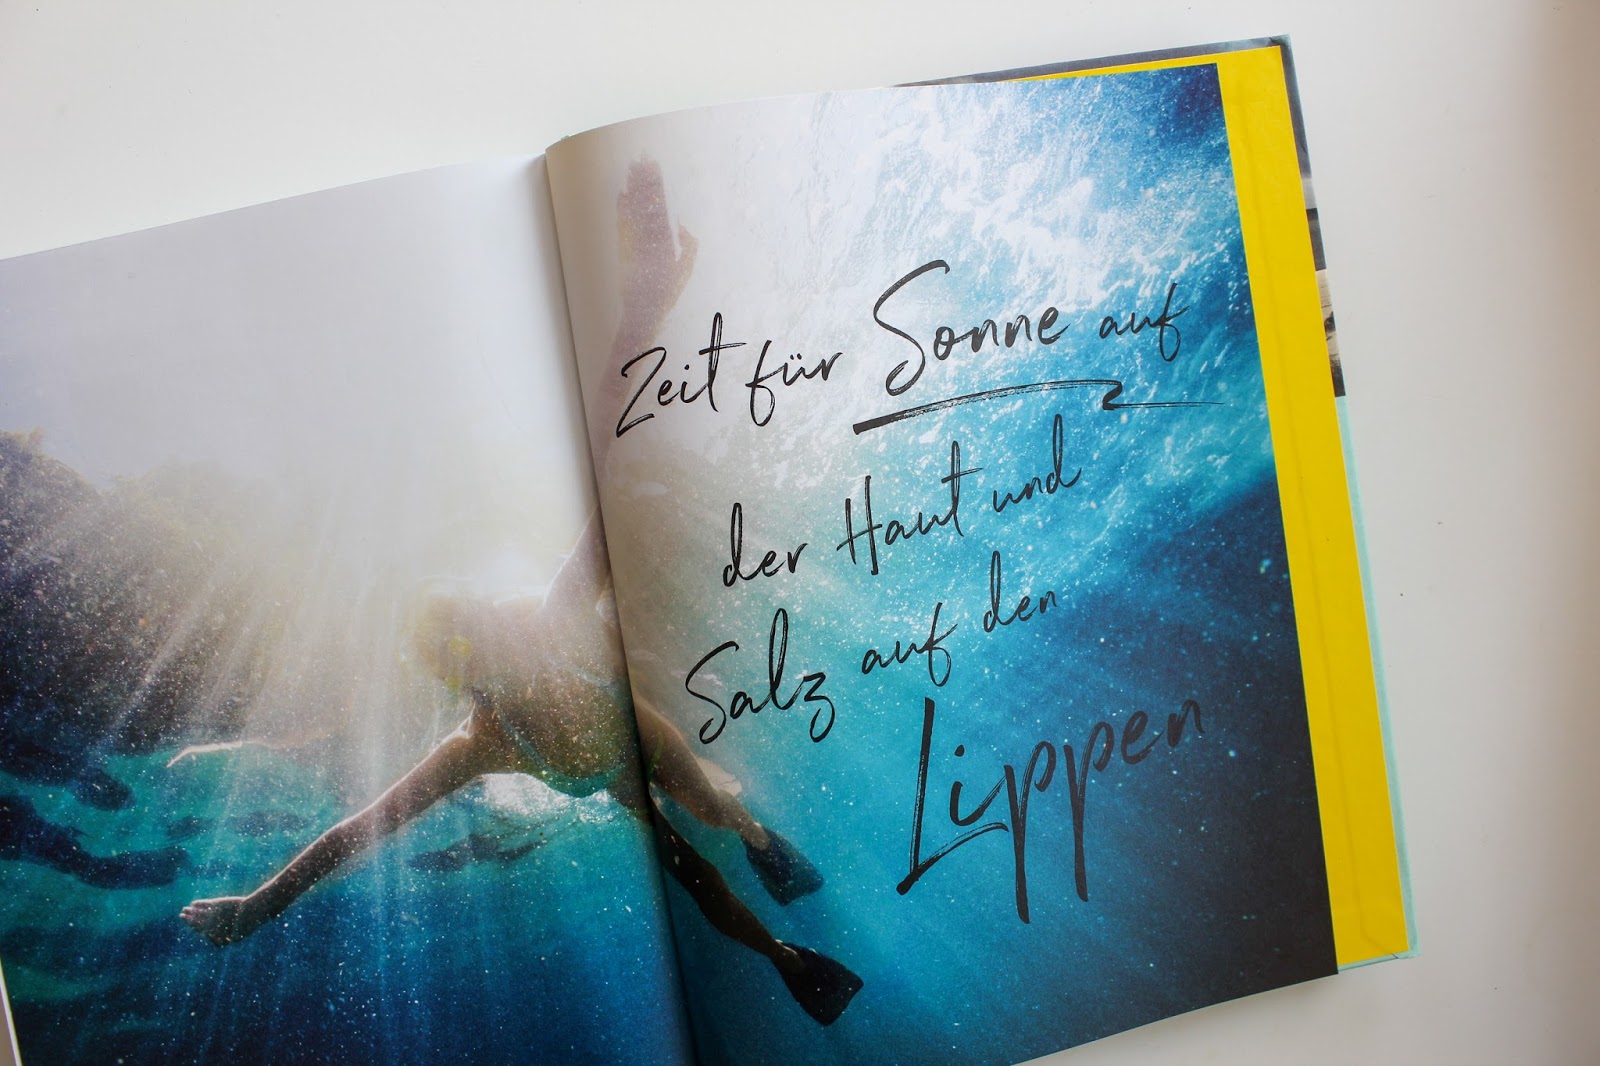 Zeit für Sonne auf
der Haut und
Salz auf den
Lippen